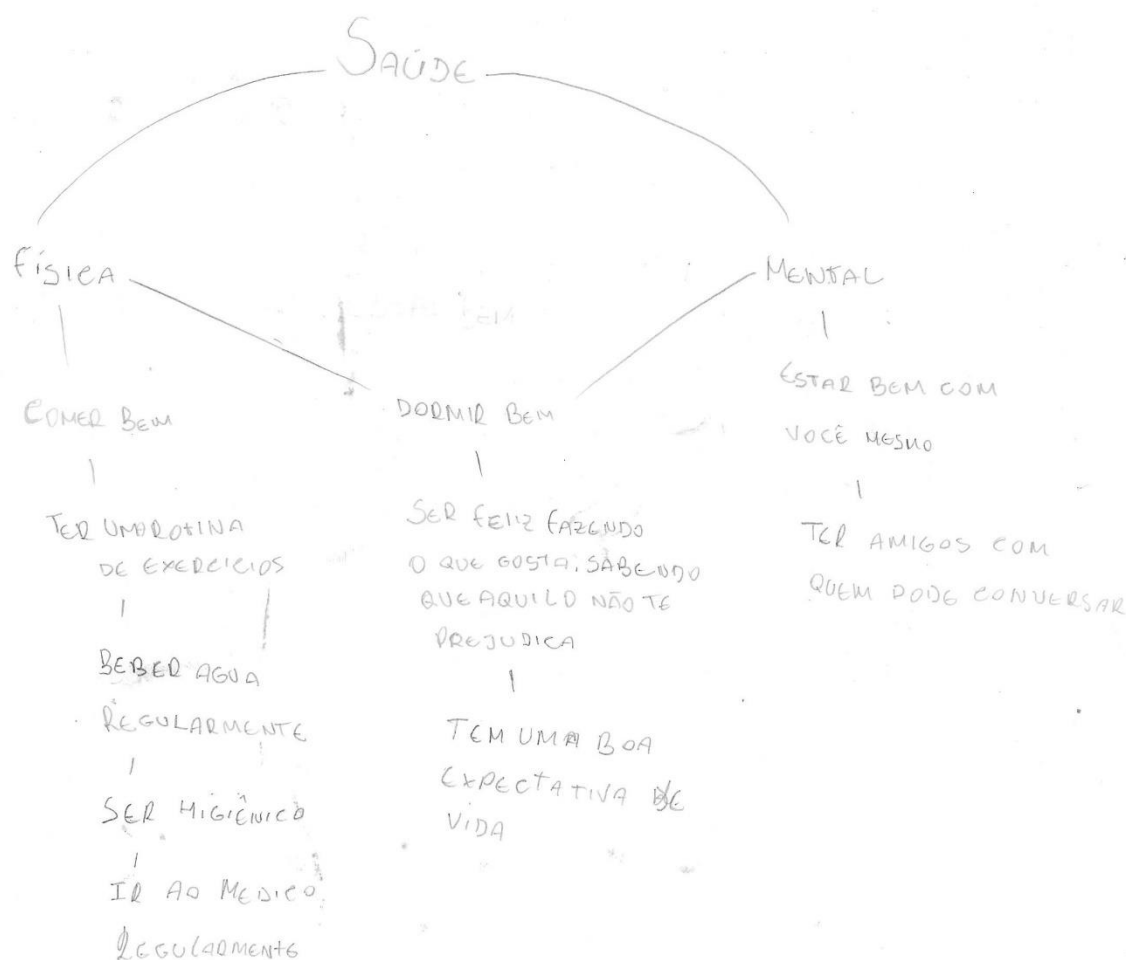 SAÚDE
FÍSICA
COMER BEM
TER UMA ROTINA
DE EXERCICIOS
BEBER AGUA
REGULARMENTE
SER HIGIÊNICO
IR AO MEDICO
REGULARMENTE
DORMIR BEM
SER FELIZ FAZENDO
O QUE GOSTA, SABENDO
QUE AQUILO NÃO TE
PREJUDICA
TEM UMA BOA
EXPECTATIVA DE
VIDA
MENTAL
ESTAR BEM COM
VOCÊ MESMO
TER AMIGOS COM
QUEM PODE CONVERSAR